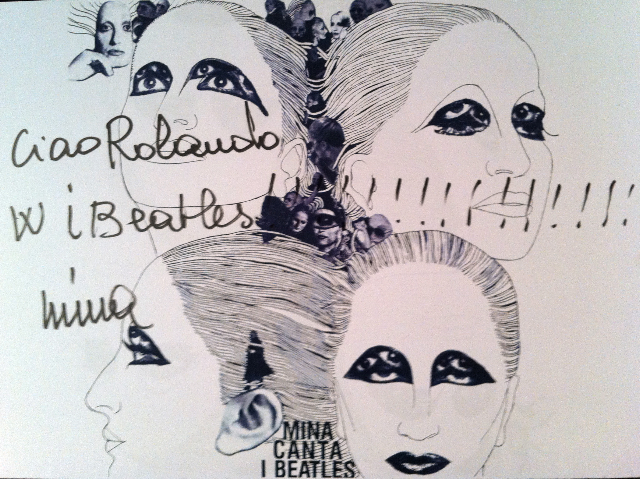 Ciao Rolando
W i Beatles!!!!!!!!!!!!!!!!
mina
MINA
CANTA
I BEATLES